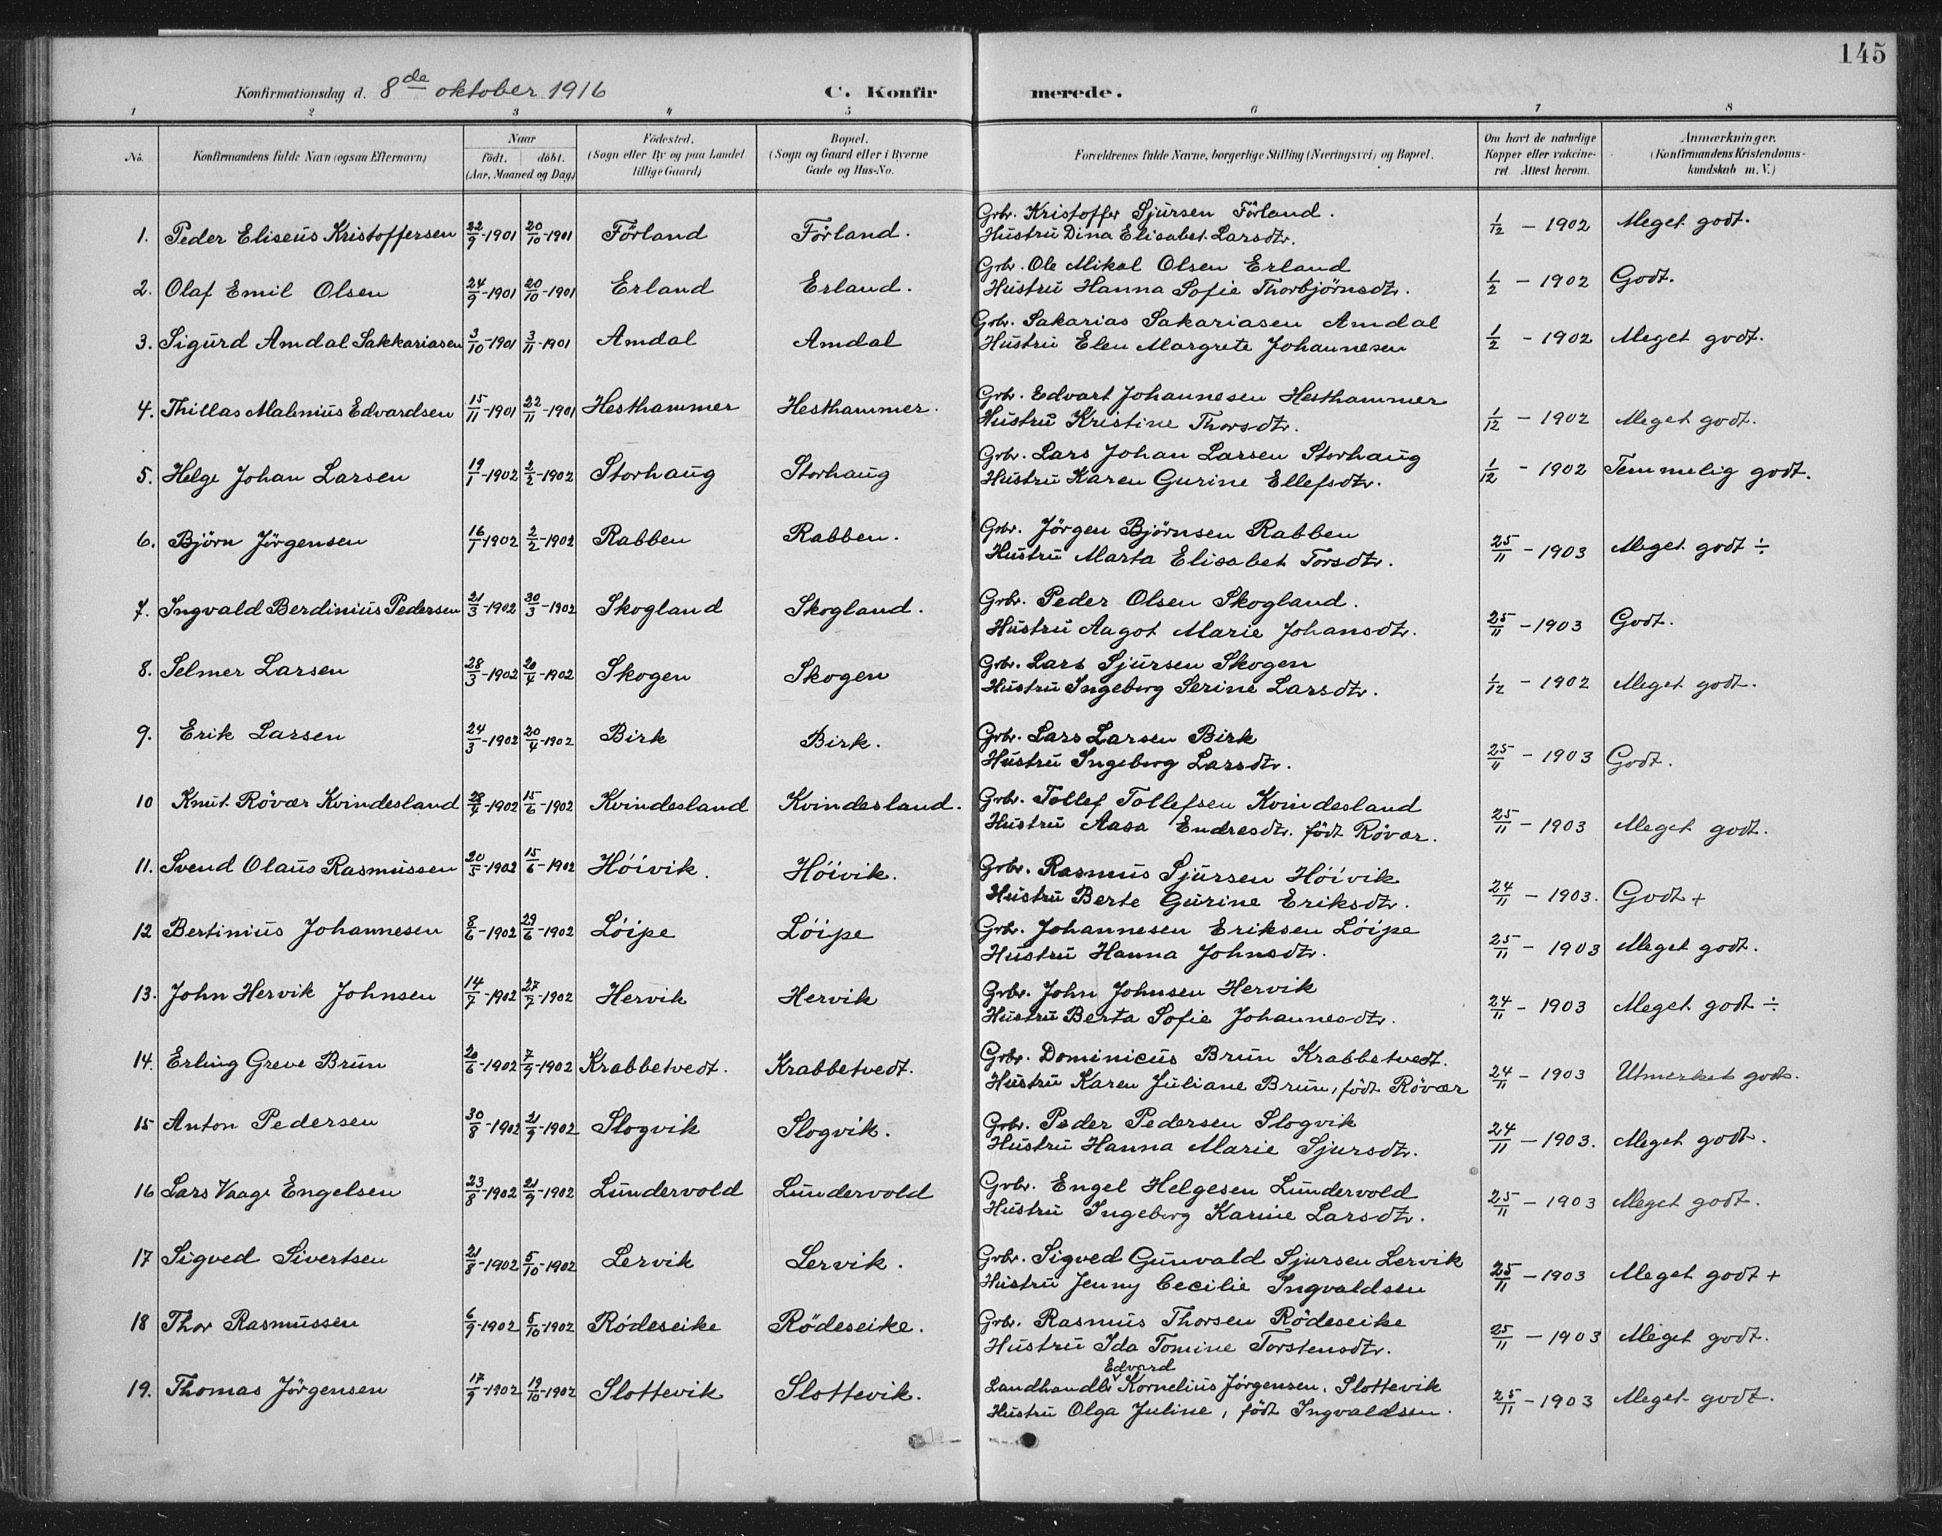 145
Konfirmationsdag d. 8de oktober 1916 C. Konfir merede.
1 2 3 4 5 6 7 8
No. Konfirmandens fulde Navn (ogsaa Efternavn) Naar født. døbt. (Aar, Maaned og Dag) Fødested. (Sogn eller By og paa Landet tillige Gaard) Bopæl. (Sogn og Gaard eller i Byerne Gade og Hus-No. Forældrenes fulde Navne, borgerlige Stilling (Næringsvei) og Bopæl. Om havt de naturlige Kopper eller vaccineret. Attest herom. Anmærkninger. (Konfirmandens Kristendomskundskab m. V.)
1. Peder Eliseus Kristoffersen 22/9-1901 20/10-1901 Förland Förland. Grbr. Kristoffer Sjursen Förland. 1/12 - 1902 Meget godt.
Hustru Dina Elisabet Larsdtr.
2. Olaf Emil Olsen 24/9-1901 20/10-1901 Erland Erland. Grbr. Ole Mikal Olsen Erland 1/2 - 1902 Godt.
Hustru Hanna Sofie Thorbjørnsdtr.
3. Sigurd Amdal Sakkariasen 3/10-1901 3/11-1901 Amdal Amdal Grbr. Sakarias Sakariasen Amdal 1/2 - 1902 Meget godt.
Hustru Elen Margrete Johannesen
4. Thillas Malenius Edvardsen 15/11-1901 22/11-1901 Hesthammer Hesthammer. Grbr. Edvart Johannesen Hesthammer 1/12 - 1902 Meget godt.
Hustru Kristine Thorsdtr.
5. Helge Johan Larsen 19/1-1902 2/2-1902 Storhaug Storhaug Grbr. Lars Johan Larsen Storhaug 1/12 - 1902 Temmelig godt.
Hustru Karen Gurine Ellefsdtr.
6. Björn Jörgensen 16/1-1902 2/2-1902 Rabben Rabben. Grbr. Jörgen Bjørnsen Rabben 25/11 - 1903 Meget godt ÷
Hustru Marta Elisabet Torsdtr.
7. Ingvald Berdinius Pedersen 21/3-1902 30/3-1902 Skogland Skogland. Grbr. Peder Olsen Skogland. 25/11 - 1903 Godt.
Hustru Aagot Marie Johansdtr.
8. Selmer Larsen 28/3-1902 20/4-1902 Skogen Skogen Grbr. Lars Sjursen Skogen 1/12 - 1902 Meget godt.
Hustru Ingeborg Serine Larsdtr.
9. Erik Larsen 24/3-1902 20/4-1902 Birk Birk. Grbr. Lars Larsen Birk 25/11 - 1903 Godt.
Hustru Ingeborg Larsdtr.
10 Knut Rövær Kvindesland 28/4-1902 15/6-1902 Kvindesland Kvindesland. Grbr. Tollef Tollefsen Kvindesland 25/11 - 1903 Meget godt.
Hustru Aasa Endresdtr. född Rövær.
11. Svend Olaus Rasmussen 20/5-1902 15/6-1902 Höivik. Höivik. Grbr. Rasmus Sjursen Höivik 24/11 - 1903. Godt +
Hustru Berte Gurine Eriksdtr.
12 Bertinius Johannesen 8/6-1902 29/6-1902 Löipe Löipe Grbr. Johannesen Eriksen Löipe 25/11 - 1903 Meget godt.
Hustru Hanna Johnsdtr.
13. John Hervik Johnsen 14/7-1902 27/7-1902 Hervik Hervik Grbr. John Johnsen Hervik 24/11 - 1903 Meget godt ÷
Hustru Berta Sofie Johannesdtr.
14. Erling Greve Brun 20/6-1902 7/9-1902 Krabbetvedt. Krabbetvedt. Grbr. Dominicus Brun Krabbetvedt. 24/11 - 1903 Utmerket godt.
Hustru Karen Juliane Brun, född Rövær
15 Anton Pedersen 30/8-1902 21/9-1902 Slogvik Slogvik. Grbr. Peder Pedersen Slogvik 24/11 - 1903. Meget godt.
Hustru Hanna Marie Sjursdtr.
16 Lars Vaage Engelsen 23/8-1902 21/9-1902 Lundervold Lundervold Grbr. Engel Helgesen Lundervold 25/11 - 1903 Meget godt.
Hustru Ingeborg Karine Larsdtr.
17 Sigved Sivertsen 21/8-1902 5/10-1902 Lervik Lervik. Grbr. Sigved Gunvald Sjursen Lervik 25/11 - 1903 Meget godt +
Hustru Jenny Cecilie Ingvaldsen
18 Thor Rasmussen 6/9-1902 5/10-1902 Rödeseike Rödeseike. Grbr. Rasmus Thorsen Rödeseike 25/11 - 1903 Meget godt.
Hustru Ida Tomine Torstensdtr.
19. Thomas Jörgensen 17/9-1902 19/10-1902 Slottevik Slottevik. Landhandler Edvard Kornelius Jörgensen, Slottevik 25/11 - 1903 Meget godt.
Hustru Olga Juline, född Ingvaldsen.